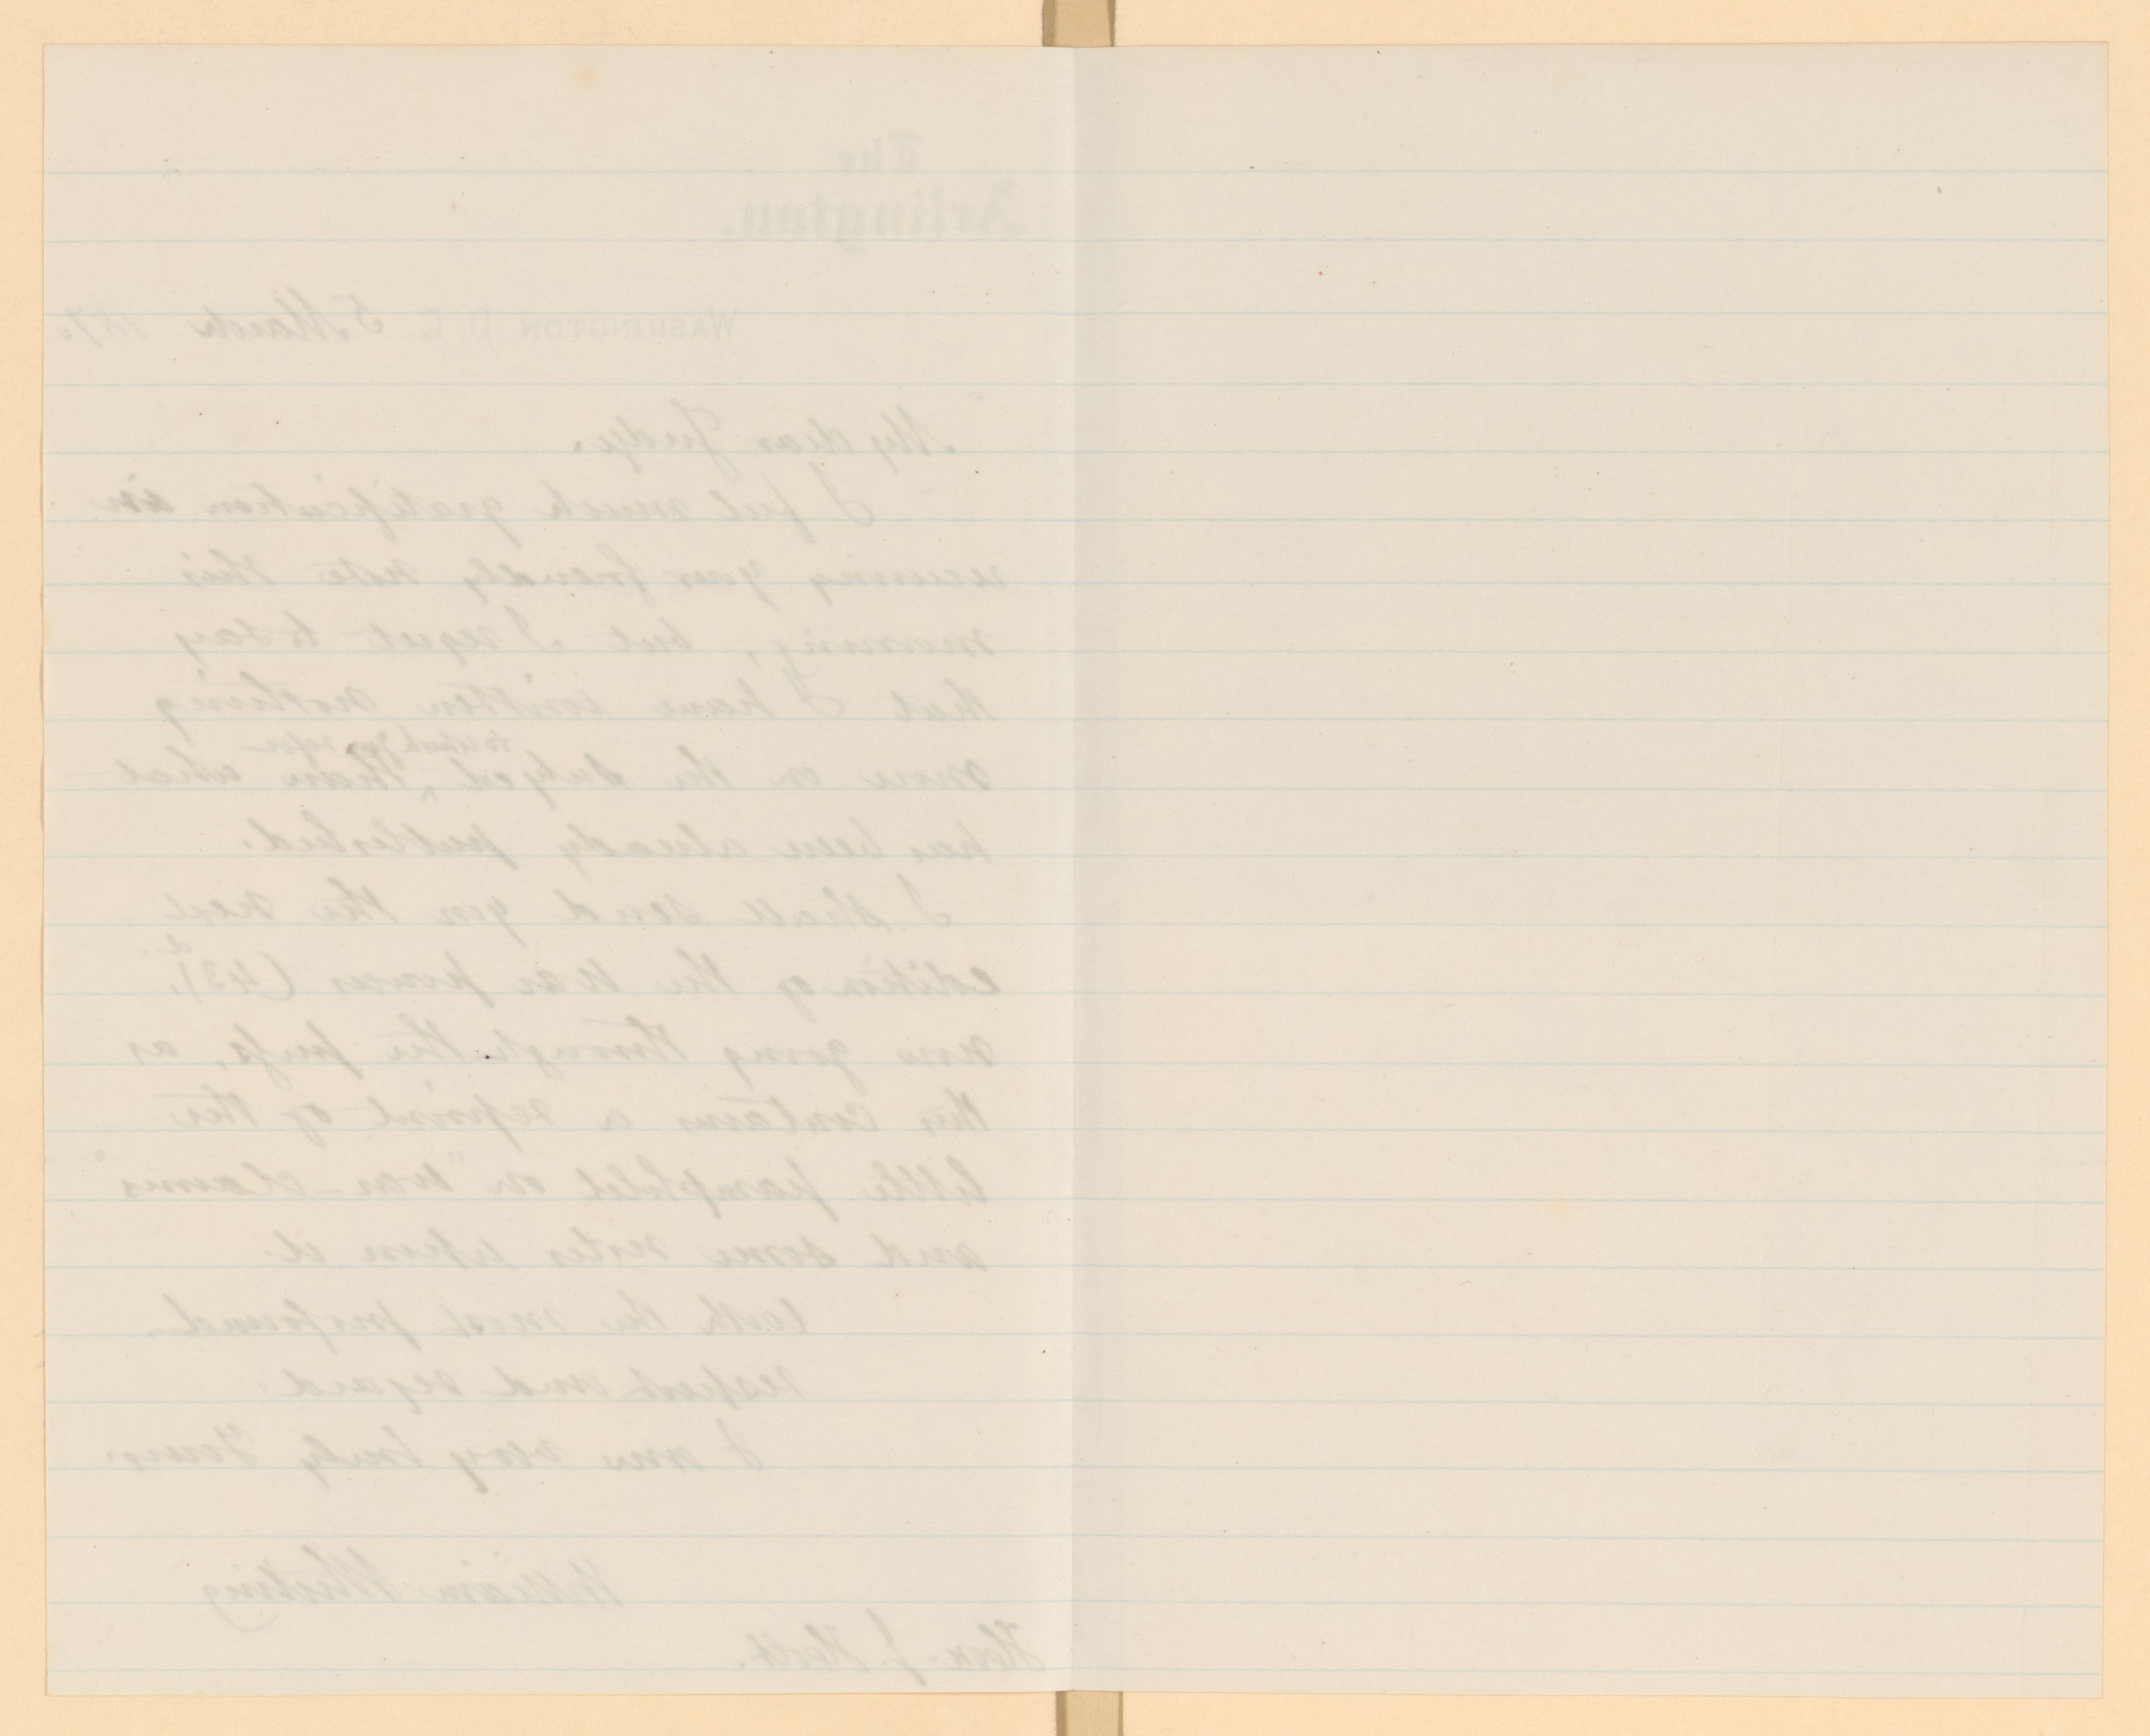 The
Arlington.
WASHINGTON D. C. 5 March 187
My dear Judge.
I feel much gratification in
receiving your friendly note this
morning, but I regret to say
that I have written nothing
to which you refer
more on the subject ^ than what
has been already published.
I shall send you the next
edition of the War powers (43)d.
now going through the press, as
this contains a reprint of the
little pamphlet on "War-claims"
and some notes upon it.
With the most profound
respect and regard.
I am very truly Yours.
William Whiting
Hon. J. Holt.